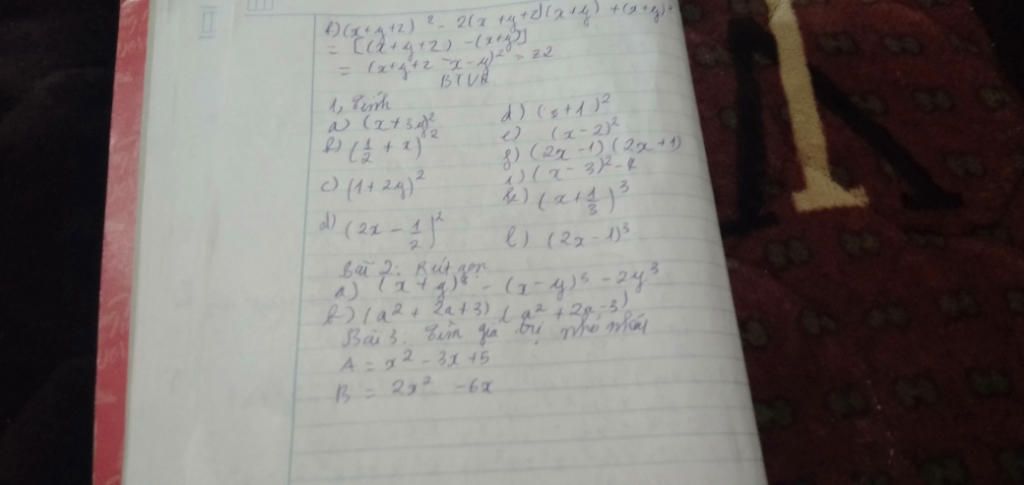 b) (x+y+z)² - 2(x+y+z)(x+y) + (x+y)²
= [(x+y+z) - (x+y)]
= (x+y+z-x-y)² = z2
BTVN
1, Tính
a) (x+3y)²
b) (1/2 + x)²
c) (1+2y)²
d) (2x - 1/2)²
d) (x+1)²
e) (x-2)²
g) (2x-1)(2x+1)
i) (x-3)²-
k) (x+1/3)³
l) (2x-1)³
Bài 2. Rút gọn
a) (x+y)³ - (x-y)³ - 2y³
b) (a² + 2a+3) (a² + 2a-3)
Bài 3. Tìm giá trị nhỏ nhất
A = x² - 3x +5
B = 2x² -6x